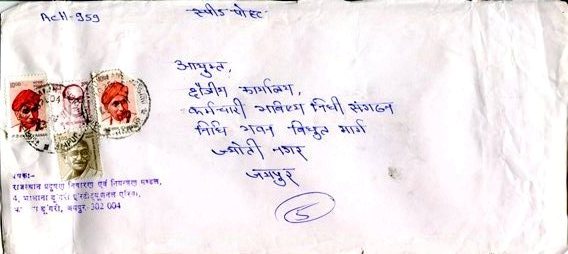 AcH-959
स्पीड-पोस्ट
आयुक्त,
क्षेत्रीय कार्यालय,
कर्मचारी भविष्य निधी संगठन
निधि भवन विधुत मार्ग
ज्योती नगर
जयपुर
5
प्रेषक:-
राजस्थान प्रदूषण निवारण एवं नियन्त्रण मण्डल,
4, झालाना डूंगरी इन्स्टीट्यूशनल एरिया,
झालाना डूंगरी, जयपुर-302 004